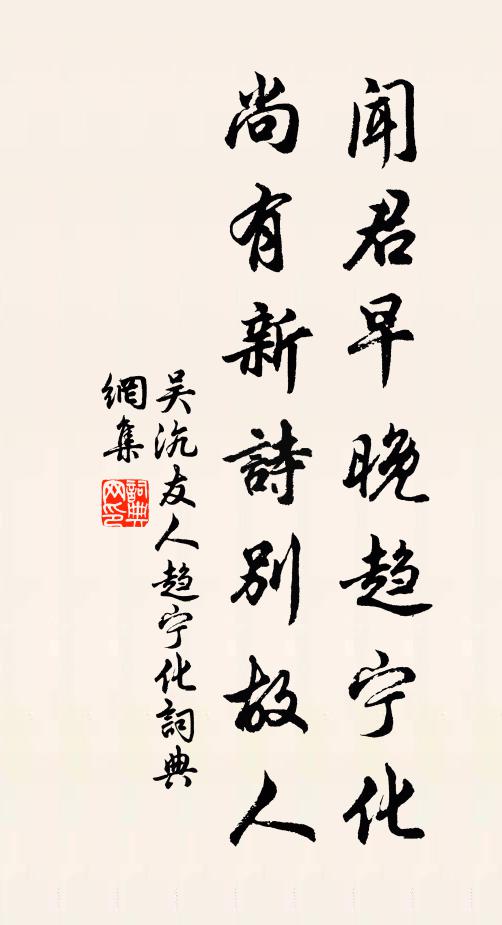 闻君早晚趋宁化
尚有新詩别故人
吴沆友人趋宁化詞典
網集
詞典
网印